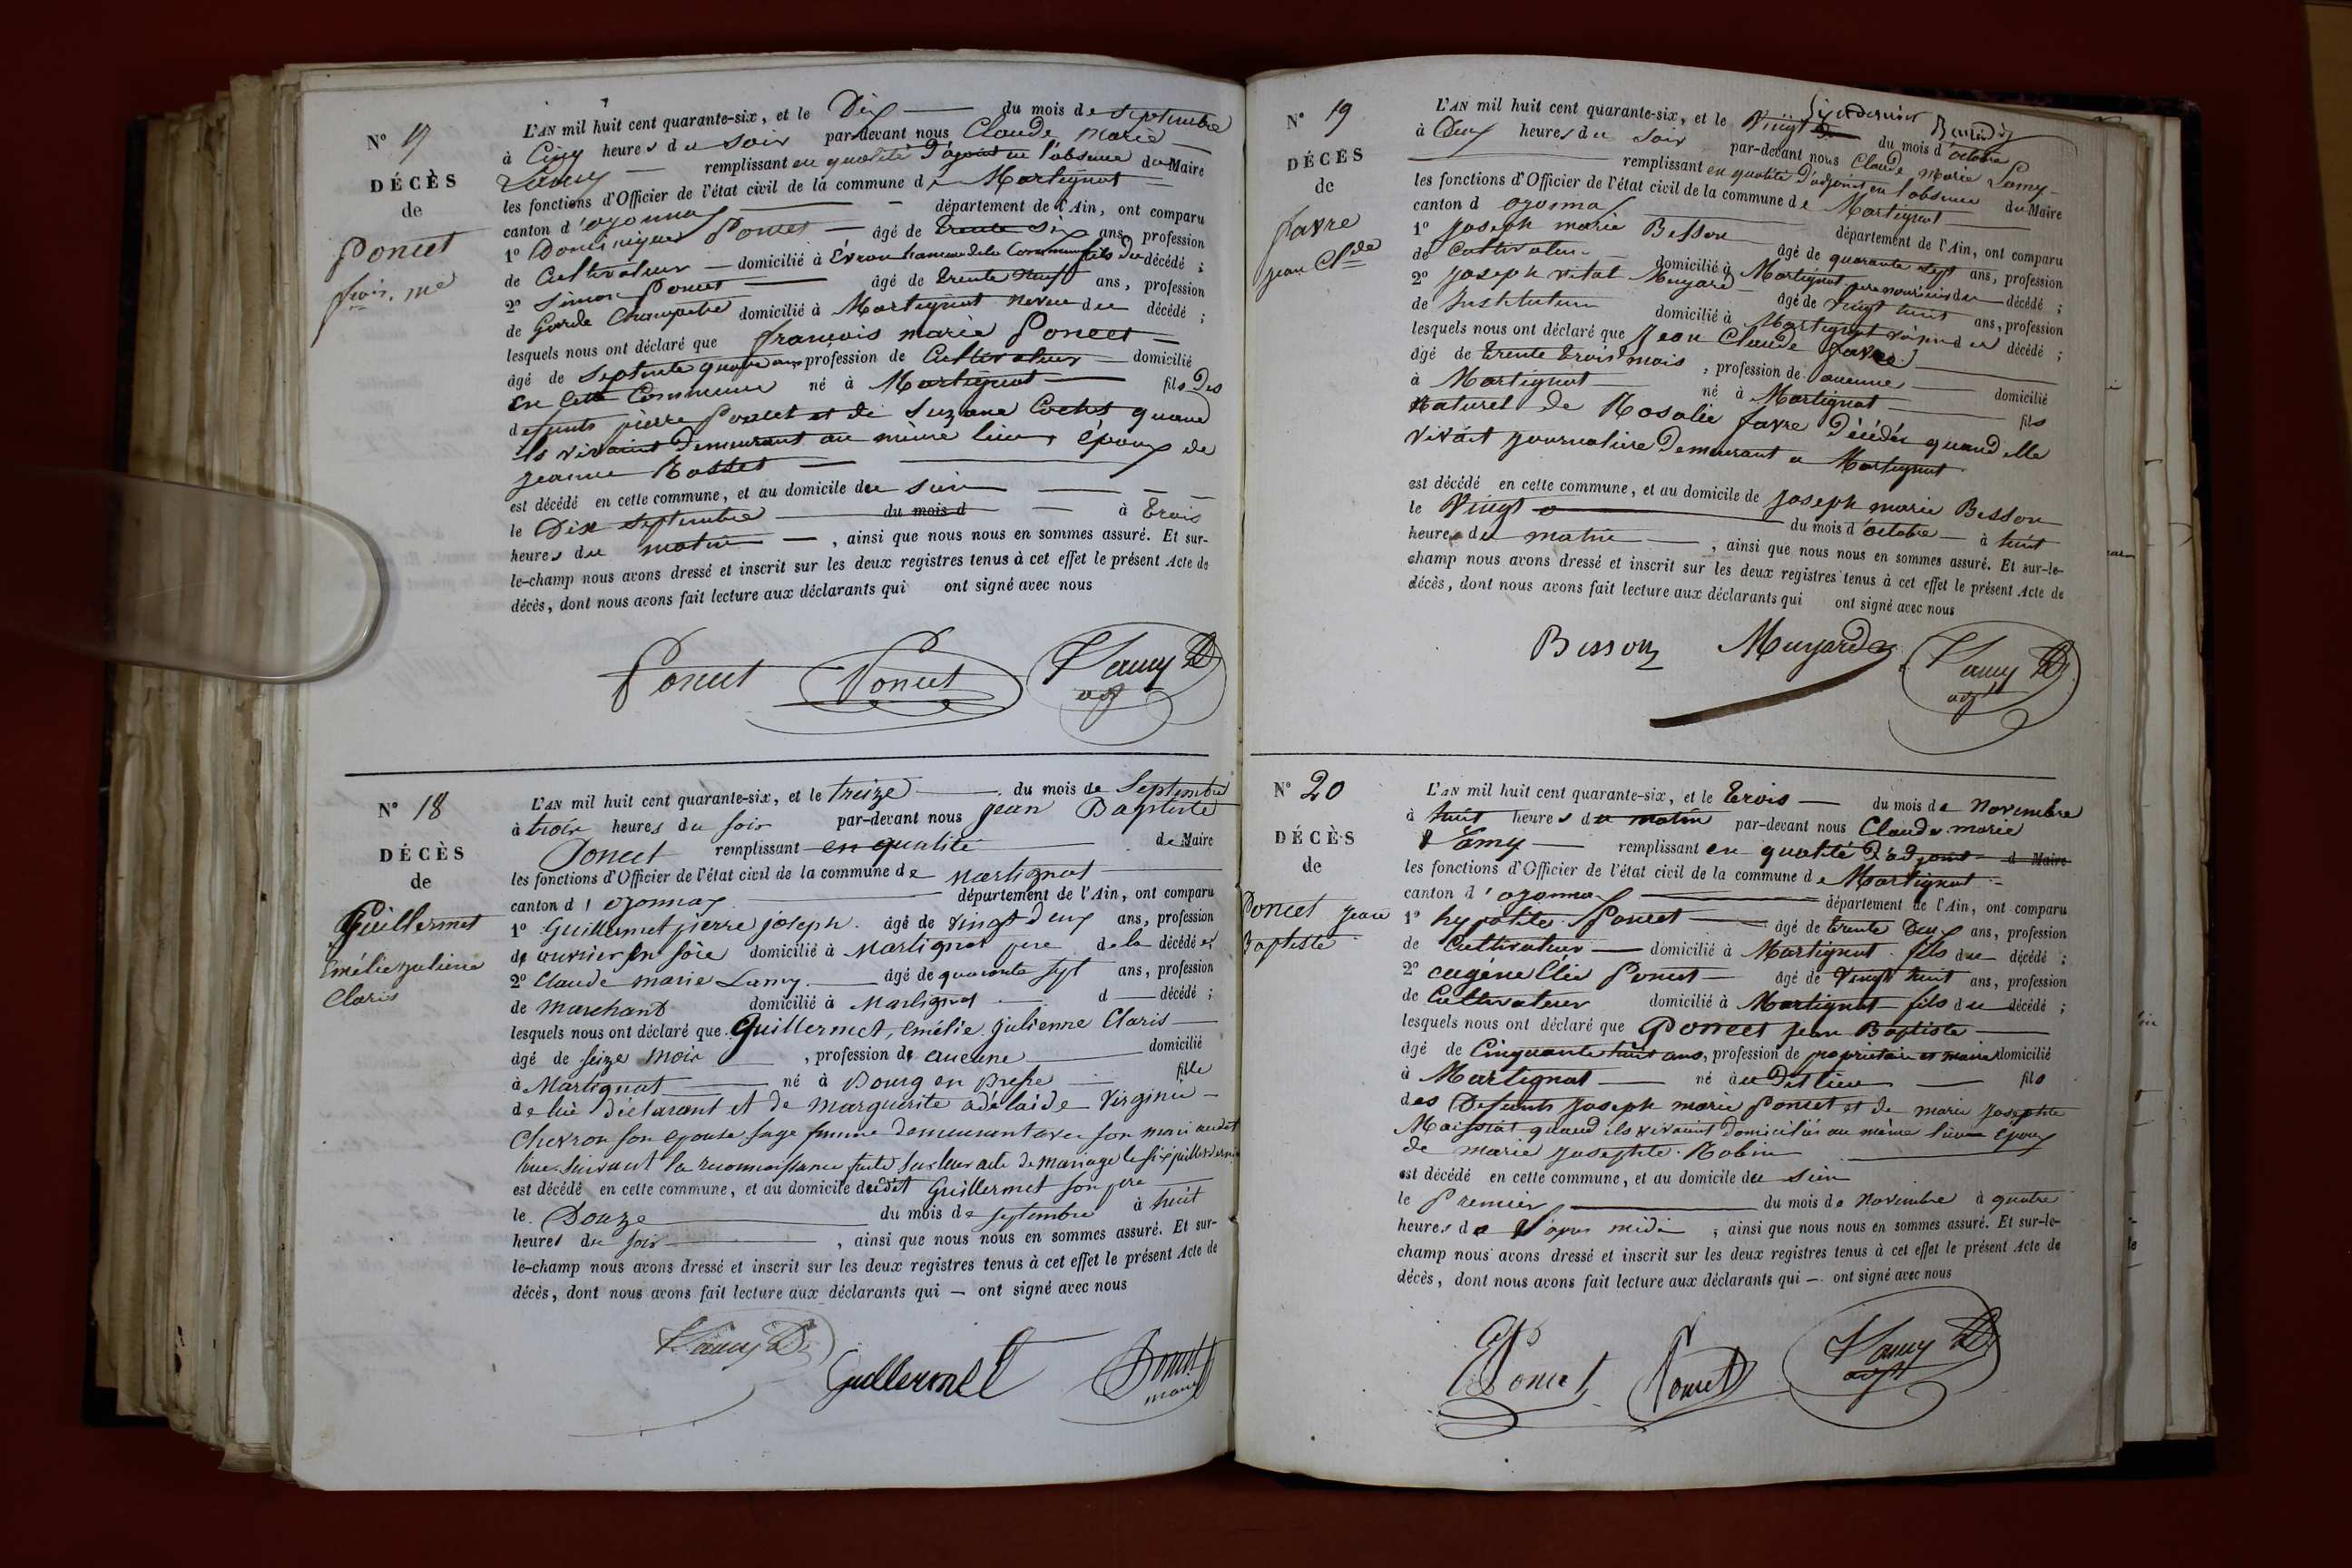 N° 17
DÉCÈS
de
Poncet
frois. me
L'AN mil huit cent quarante-six, et le Dix du mois de septembre
à Cinq heures du soir par-devant nous Claude Marie
Lamy remplissant en qualité d'adjoint en l'absence du Maire
les fonctions d'Officier de l'état civil de la commune de Martignat
canton d'oyonnax département de l'Ain, ont comparu
1° Dominique Poncet âgé de trente six ans, profession
de Cultivateur domicilié à Évron hameau de la Commune fils du décédé ;
2° Simon Poncet âgé de trente neuf ans, profession
de Garde Champetre domicilié à Martignat neveu du décédé ;
lesquels nous ont déclaré que françois marie Poncet
âgé de septente quatre ans profession de Cultivateur domicilié
en Cette Commune né à Martignat fils des
defunts pierre Poncet et de Suzane Cochet quand
ils vivaient demeurant au même lieu, époux de
jeanne Rosset
est décédé en cette commune, et au domicile du sien
le Dix septembre du mois d à trois
heures du matin , ainsi que nous nous en sommes assuré. Et sur-
le-champ nous avons dressé et inscrit sur les deux registres tenus à cet effet le présent Acte de
décès, dont nous avons fait lecture aux déclarants qui ont signé avec nous
Poncet Poncet Lamy
adj
N° 18
DÉCÈS
de
Guillermet
Emélie julienne
Claris
L'AN mil huit cent quarante-six, et le treize du mois de Septembre
à trois heures du soir par-devant nous jean Baptiste
Poncet remplissant en qualité de Maire
les fonctions d'Officier de l'état civil de la commune de Martignat
canton d'oyonnax département de l'Ain, ont comparu
1° Guillermet pierre joseph âgé de vingt deux ans, profession
de ouvrier en soie domicilié à Martignat pere de la décédée
2° Claude marie Lamy âgé de quarante sept ans, profession
de Marchand domicilié à Martignat d décédé ;
lesquels nous ont déclaré que Guillermet, emélie julienne Claris
âgé de seize mois , profession de aucune domicilié
à Martignat né à Bourg en Bresse fille
de lui déclarant et de Marguerite adélaïde Virginie
Chevron son epouse sage femme demeurant avec son mari audit
lieu. suivant la reconnoissance faite sur leur acte de mariage le six juillet dernier
est décédé en cette commune, et au domicile dudit Guillermet son pere
le Douze du mois de septembre à huit
heures du soir , ainsi que nous nous en sommes assuré. Et sur-
le-champ nous avons dressé et inscrit sur les deux registres tenus à cet effet le présent Acte de
décès, dont nous avons fait lecture aux déclarants qui — ont signé avec nous
Lamy
Guillermet Poncet
maire
N° 19
DÉCÈS
de
favre
jean Clde
L'AN mil huit cent quarante-six, et le Vingt du mois d'octobre
à Deux heures du soir par-devant nous Claude Marie Lamy
remplissant en qualité d'adjoint en l'absence du Maire
les fonctions d'Officier de l'état civil de la commune de Martignat
canton d oyonnax département de l'Ain, ont comparu
1° joseph marie Besson âgé de quarante sept ans, profession
de Cultivateur domicilié à Martignat pere nourricier du décédé ;
2° joseph vital Muyard âgé de vingt huit ans, profession
de Instituteur domicilié à Martignat voisin du décédé ;
lesquels nous ont déclaré que Jean Claude favre
âgé de trente trois mois , profession de aucune domicilié
à Martignat né à Martignat fils
naturel de Rosalie favre Décédée quand elle
vivait journaliere demeurant a Martignat
est décédé en cette commune, et au domicile de joseph marie Besson
le Vingt du mois d'octobre à huit
heures du matin , ainsi que nous nous en sommes assuré. Et sur-le-
champ nous avons dressé et inscrit sur les deux registres tenus à cet effet le présent Acte de
décès, dont nous avons fait lecture aux déclarants qui ont signé avec nous
Besson Muyard Lamy
adj
N° 20
DÉCÈS
de
Poncet jean
Baptiste
L'AN mil huit cent quarante-six, et le trois du mois de Novembre
à huit heures du matin par-devant nous Claude marie
Lamy remplissant en qualité d'adjoint d Maire
les fonctions d'Officier de l'état civil de la commune de Martignat
canton d'oyonnax département de l'Ain, ont comparu
1° hypolite Poncet âgé de trente Deux ans, profession
de Cultivateur domicilié à Martignat fils du décédé ;
2° eugéne Elie Poncet âgé de vingt huit ans, profession
de Cultivateur domicilié à Martignat fils du décédé ;
lesquels nous ont déclaré que Poncet jean Baptiste
âgé de Cinquante huit ans, profession de proprietaire et maire domicilié
à Martignat né au Dit lieu fils
des Defunts joseph marie Poncet et de marie josephte
Maissiat quand ils vivaient domiciliés au même lieu Epoux
de marie josephte Robin
est décédé en cette commune, et au domicile du sien
le Premier du mois de novembre à quatre
heures de l'apres midi , ainsi que nous nous en sommes assuré. Et sur-le-
champ nous avons dressé et inscrit sur les deux registres tenus à cet effet le présent Acte de
décès, dont nous avons fait lecture aux déclarants qui — ont signé avec nous
Poncet Poncet Lamy
adjt